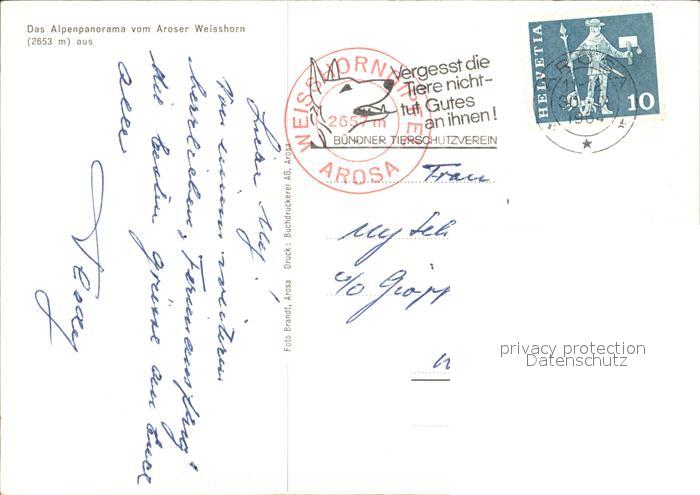 Das Alpenpanorama vom Aroser Weisshorn
(2653 m) aus
von einem weiteren
herrlichen "Ferienausflug"
die besten Grüsse an Euch
alle
Foto Brandt, Arosa Druck: Buchdruckerei AG, Arosa
WEISSHORNGIPFEL
2657 m
AROSA
Vergesst die
Tiere nicht-
tut Gutes
an ihnen!
BÜNDNER TIERSCHUTZVEREIN
HELVETIA
10
AROSA
Frau
c/o
privacy protection
Datenschutz